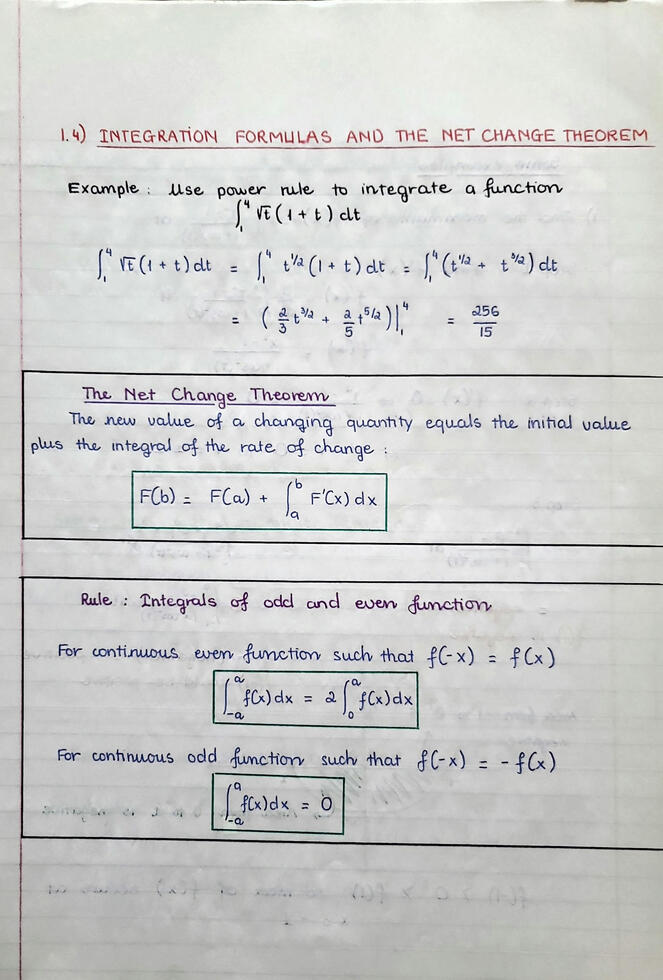 1.4) INTEGRATION FORMULAS AND THE NET CHANGE THEOREM
Example : Use power rule to integrate a function
∫₁⁴ √t (1 + t) dt
∫₁⁴ √t (1 + t) dt = ∫₁⁴ t^(1/2) (1 + t) dt = ∫₁⁴ (t^(1/2) + t^(3/2)) dt
= (2/3 t^(3/2) + 2/5 t^(5/2)) |₁⁴ = 256/15
The Net Change Theorem
The new value of a changing quantity equals the initial value
plus the integral of the rate of change :
F(b) = F(a) + ∫ₐᵇ F'(x) dx
Rule : Integrals of odd and even function
For continuous even function such that f(-x) = f(x)
∫₋ₐᵃ f(x) dx = 2 ∫₀ᵃ f(x) dx
For continuous odd function such that f(-x) = - f(x)
∫₋ₐᵃ f(x) dx = 0